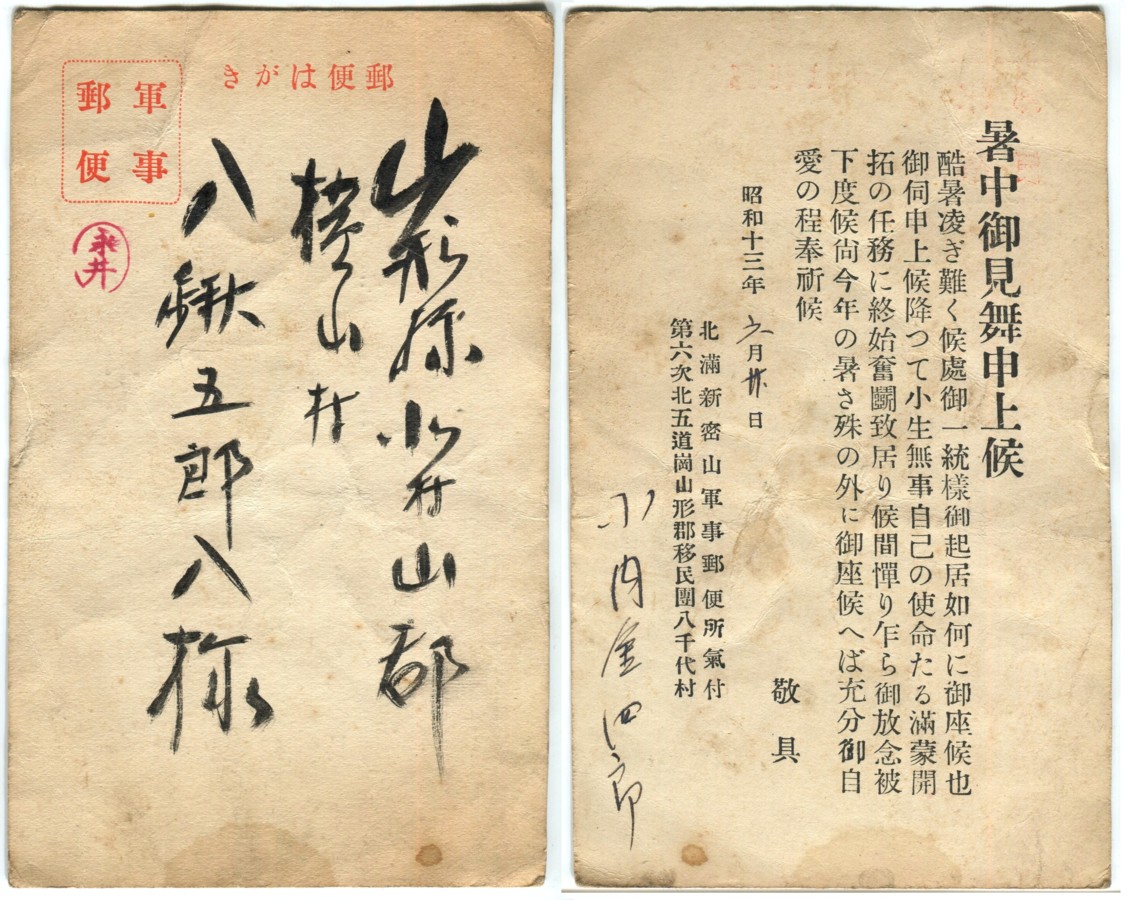 郵便はがき
軍事
郵便
永井
山形縣北村山郡
横山村
八鍬五郎八様
暑中御見舞申上候
酷暑凌ぎ難く候處御一統樣御起居如何に御座候也
御伺申上候降つて小生無事自己の使命たる滿蒙開
拓の任務に終始奮鬪致居り候間憚り乍ら御放念被
下度候尙今年の暑さ殊の外に御座候へば充分御自
愛の程奉祈候
敬具
昭和十三年六月廿日
北滿新密山軍事郵便所氣付
第六次北五道崗山形郡移民團八千代村
小内金四郎